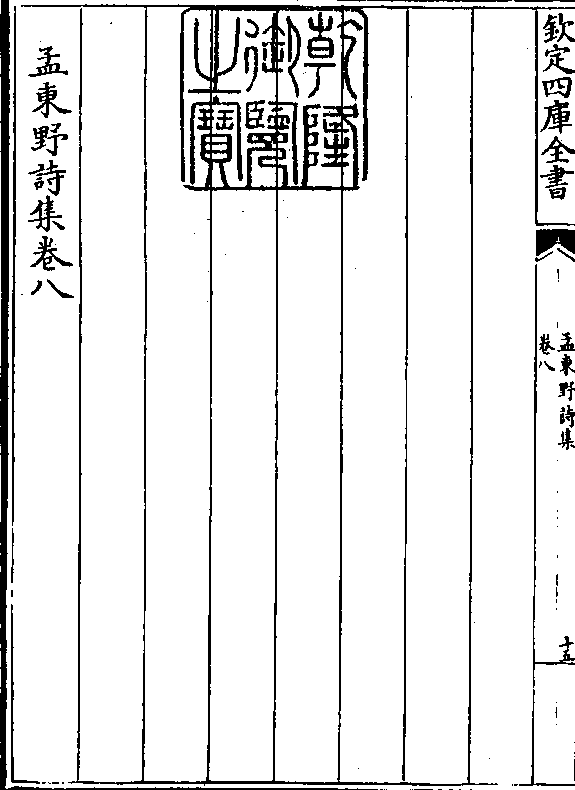 欽定四庫全書
孟東野詩集
卷八
十五
乾隆
御覽
之寶
孟東野詩集卷八